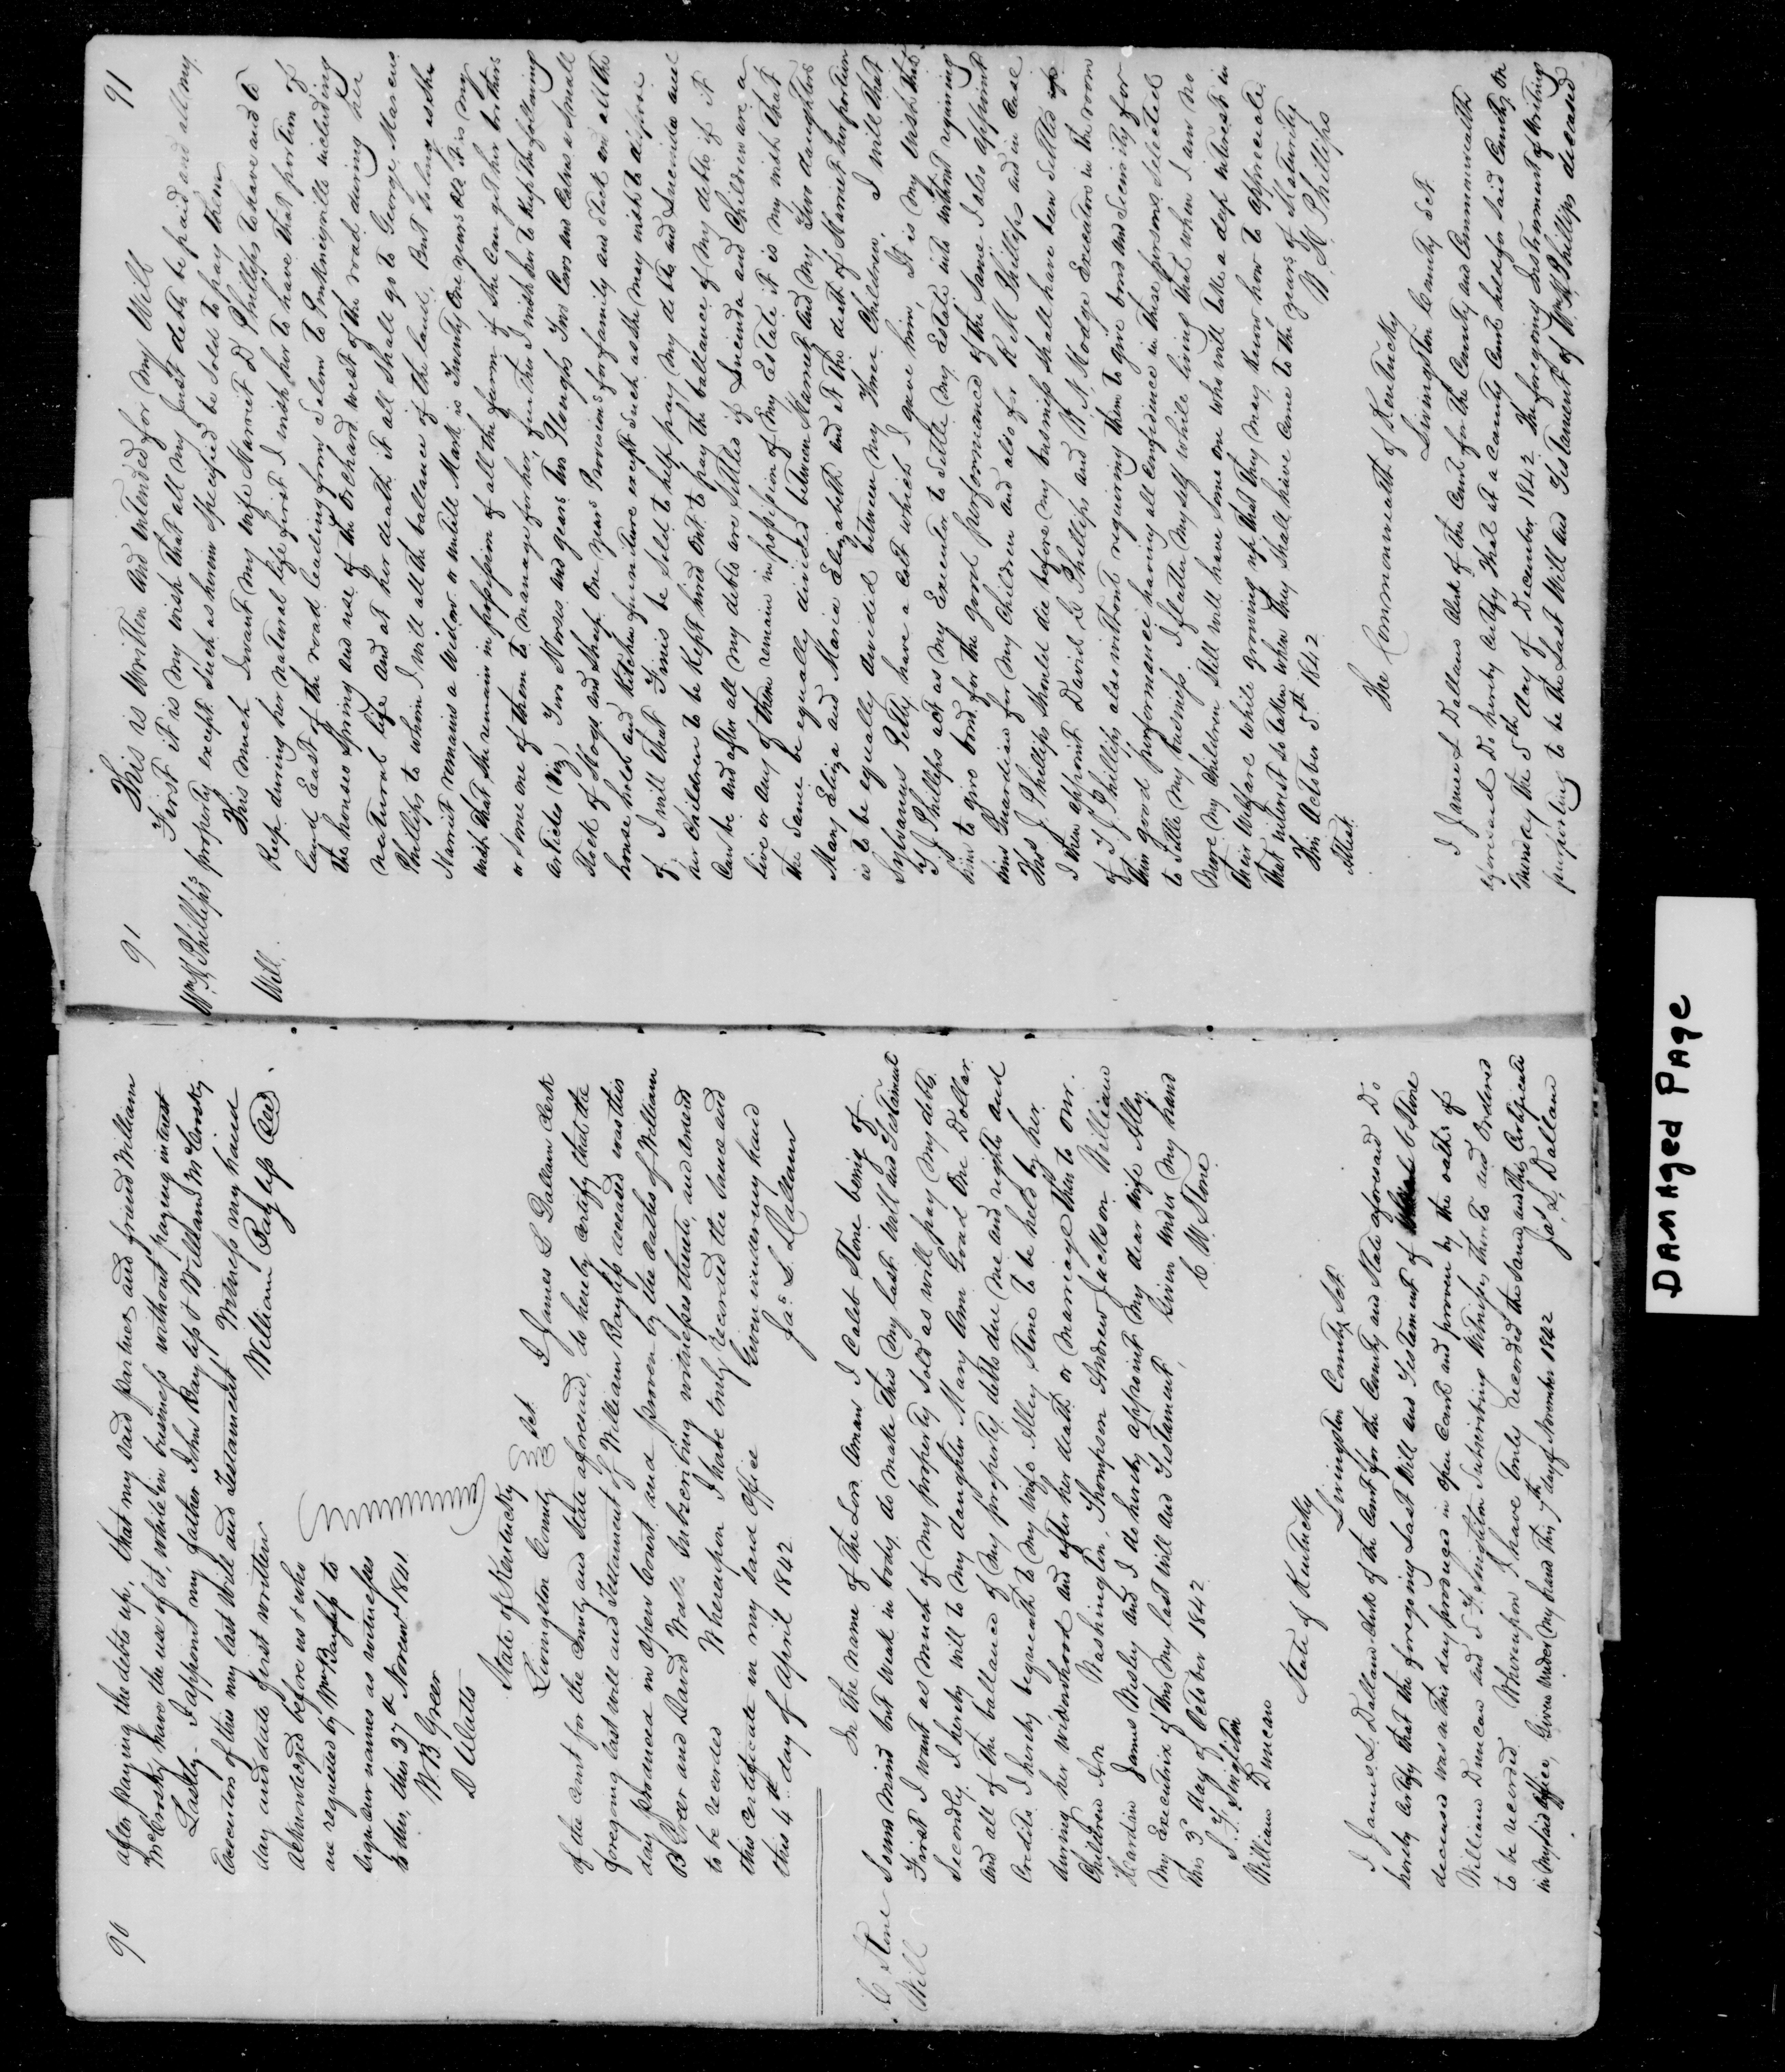 90
after paying the debts up, that my said partner and friend William
McCrosky have the use of it, while in business without paying interest
Lastly. I appoint my father John Rayliss & William McCrosky
Executors of this my last Will and Testament Witness my hand
day and date first written William Rayless Seal
acknowledged before us & who
are requested by Wm Rayliss to
sign our names as witnesses
to this, this 27th Novemr 1841.
W. B. Greer
D Watts
State of Kentucky
Livingston County Sct. I James L Dallam Clerk
of the Court for the County and State aforesaid, do hereby certify that the
foregoing last will and Testament of William Rayliss deceased was this
day produced in open Court and proven by the oaths of William
B Greer and David Watts Subscribing witnesses thereto, and ordered
to be recorded Whereupon I have truly recorded the same and
this certificate in my said office Given under my hand
this 4th day of April 1842.
Jas. L. Dallam
C Stone
Will
In the name of the Lord Aman I Caleb Stone being of
Sound mind but weak in body, do make this my last will and Testament
First I want as much of my property sold as will pay my debts.
Secondly. I hereby will to my daughter Mary Ann Goad One Dollar.
And all of the ballance of my property, debts due me and rights and
Credits I hereby bequeath to my wife Alley Stone to be held by her
during her widowhood and after her death or marriage then to our
Children Washington, Thompson Andrew Jackson William
Hardin James Wesley and I do hereby appoint my dear wife Ally
my Executrix of this my last will and Testament, Given under my hand
this 3d day of October 1842 C. W. Stone
S. F. Singleton
William Duncan
State of Kentucky
Livingston County Sct.
I James L. Dallam clerk of the Court for the County and State aforesaid Do
hereby certify that the foregoing Last Will and Testament of C Stone
deceased was on this day produced in open Court and proven by the oaths of
William Duncan and S. F. Singleton Subscribing Witnesses thereto and Ordered
to be recorded. Whereupon I have truly recorded the same and this Certificate
in my said office, Given under my hand this 7th day of November 1842 Jas. L. Dallam
91
91
Wm M Phillips
Will.
This is Written and intended for my Will
First it is my wish that all my Just debts be paid and all my
property except such as herein Specified be sold to pay them
This much I want my wife Harriet D Phillips to have and to
Keep during her natural life first I wish her to have that portion of
land East of the road leading from Salem to Pinkneyville including
the houses Spring and use of the Orchard west of the road during her
natural life and at her death it all shall go to George Marcus
Phillips to whom I will all the ballance of the land, But so long as she
Harriet remains a Widow or untill Mark is Twenty One years old it is my
wish that she remain in possession of all the farm if she can get her brothers
or some one of them to manage for her, further I wish her to Keep the following
articles (viz) Two Horses and gears Two Ploughs Two Cows and Calves a Small
Stock of Hogs and Sheep One years Provisions for family and Stock and all the
house hold and Kitchen furniture except such as she may wish to dispose
of I will that Finis be sold to help pay my debts and Lucinda and
her Children to be Kept hired out to pay the ballance of my debts if it
Can be and after all my debts are settled if Lucinda and Children are a
live or any of them remain in possession of my Estate it is my wish that
the same be equally divided between Harriet and my Two daughters
Mary Eliza and Maria Elizabeth and at the death of Harriet her portion
is to be equally divided between my Three Children. I will that
Sylvanus Petty have a colt which I gave him, It is my wish that
T J Phillips act as my Executor to settle my Estate with without requiring
him to give bond for the good performance of the same I also appoint
him Guardian for my Children and also for R M Phillips and in case
Thos J Phillips should die before my business shall have been settled up
I then appoint David D Phillips and W. N. Hodge Executors in the room
of T J. Phillips also without requiring them to give bond and security for
their good performance having all confidence in these persons selected
to settle my business. I flatter myself while living that when I am no
more my children still will have some one who will take a deep interest in
their Welfare while growing up that they may know how to appreciate
that interest so taken when they shall have come to the years of Maturity
This October 5th 1842 W. M Phillips
Attest.
The Commonwealth of Kentucky
Livingston County Sct.
I James L Dallam Clerk of the Court for the County and Commonwealth
aforesaid Do hereby certify that at a County Court held for said County on
Monday the 5th day of December 1842. The foregoing Instrument of Writing
purporting to be the Last Will and Testament of Wm M Phillips deceased
DAMAGED PAGE